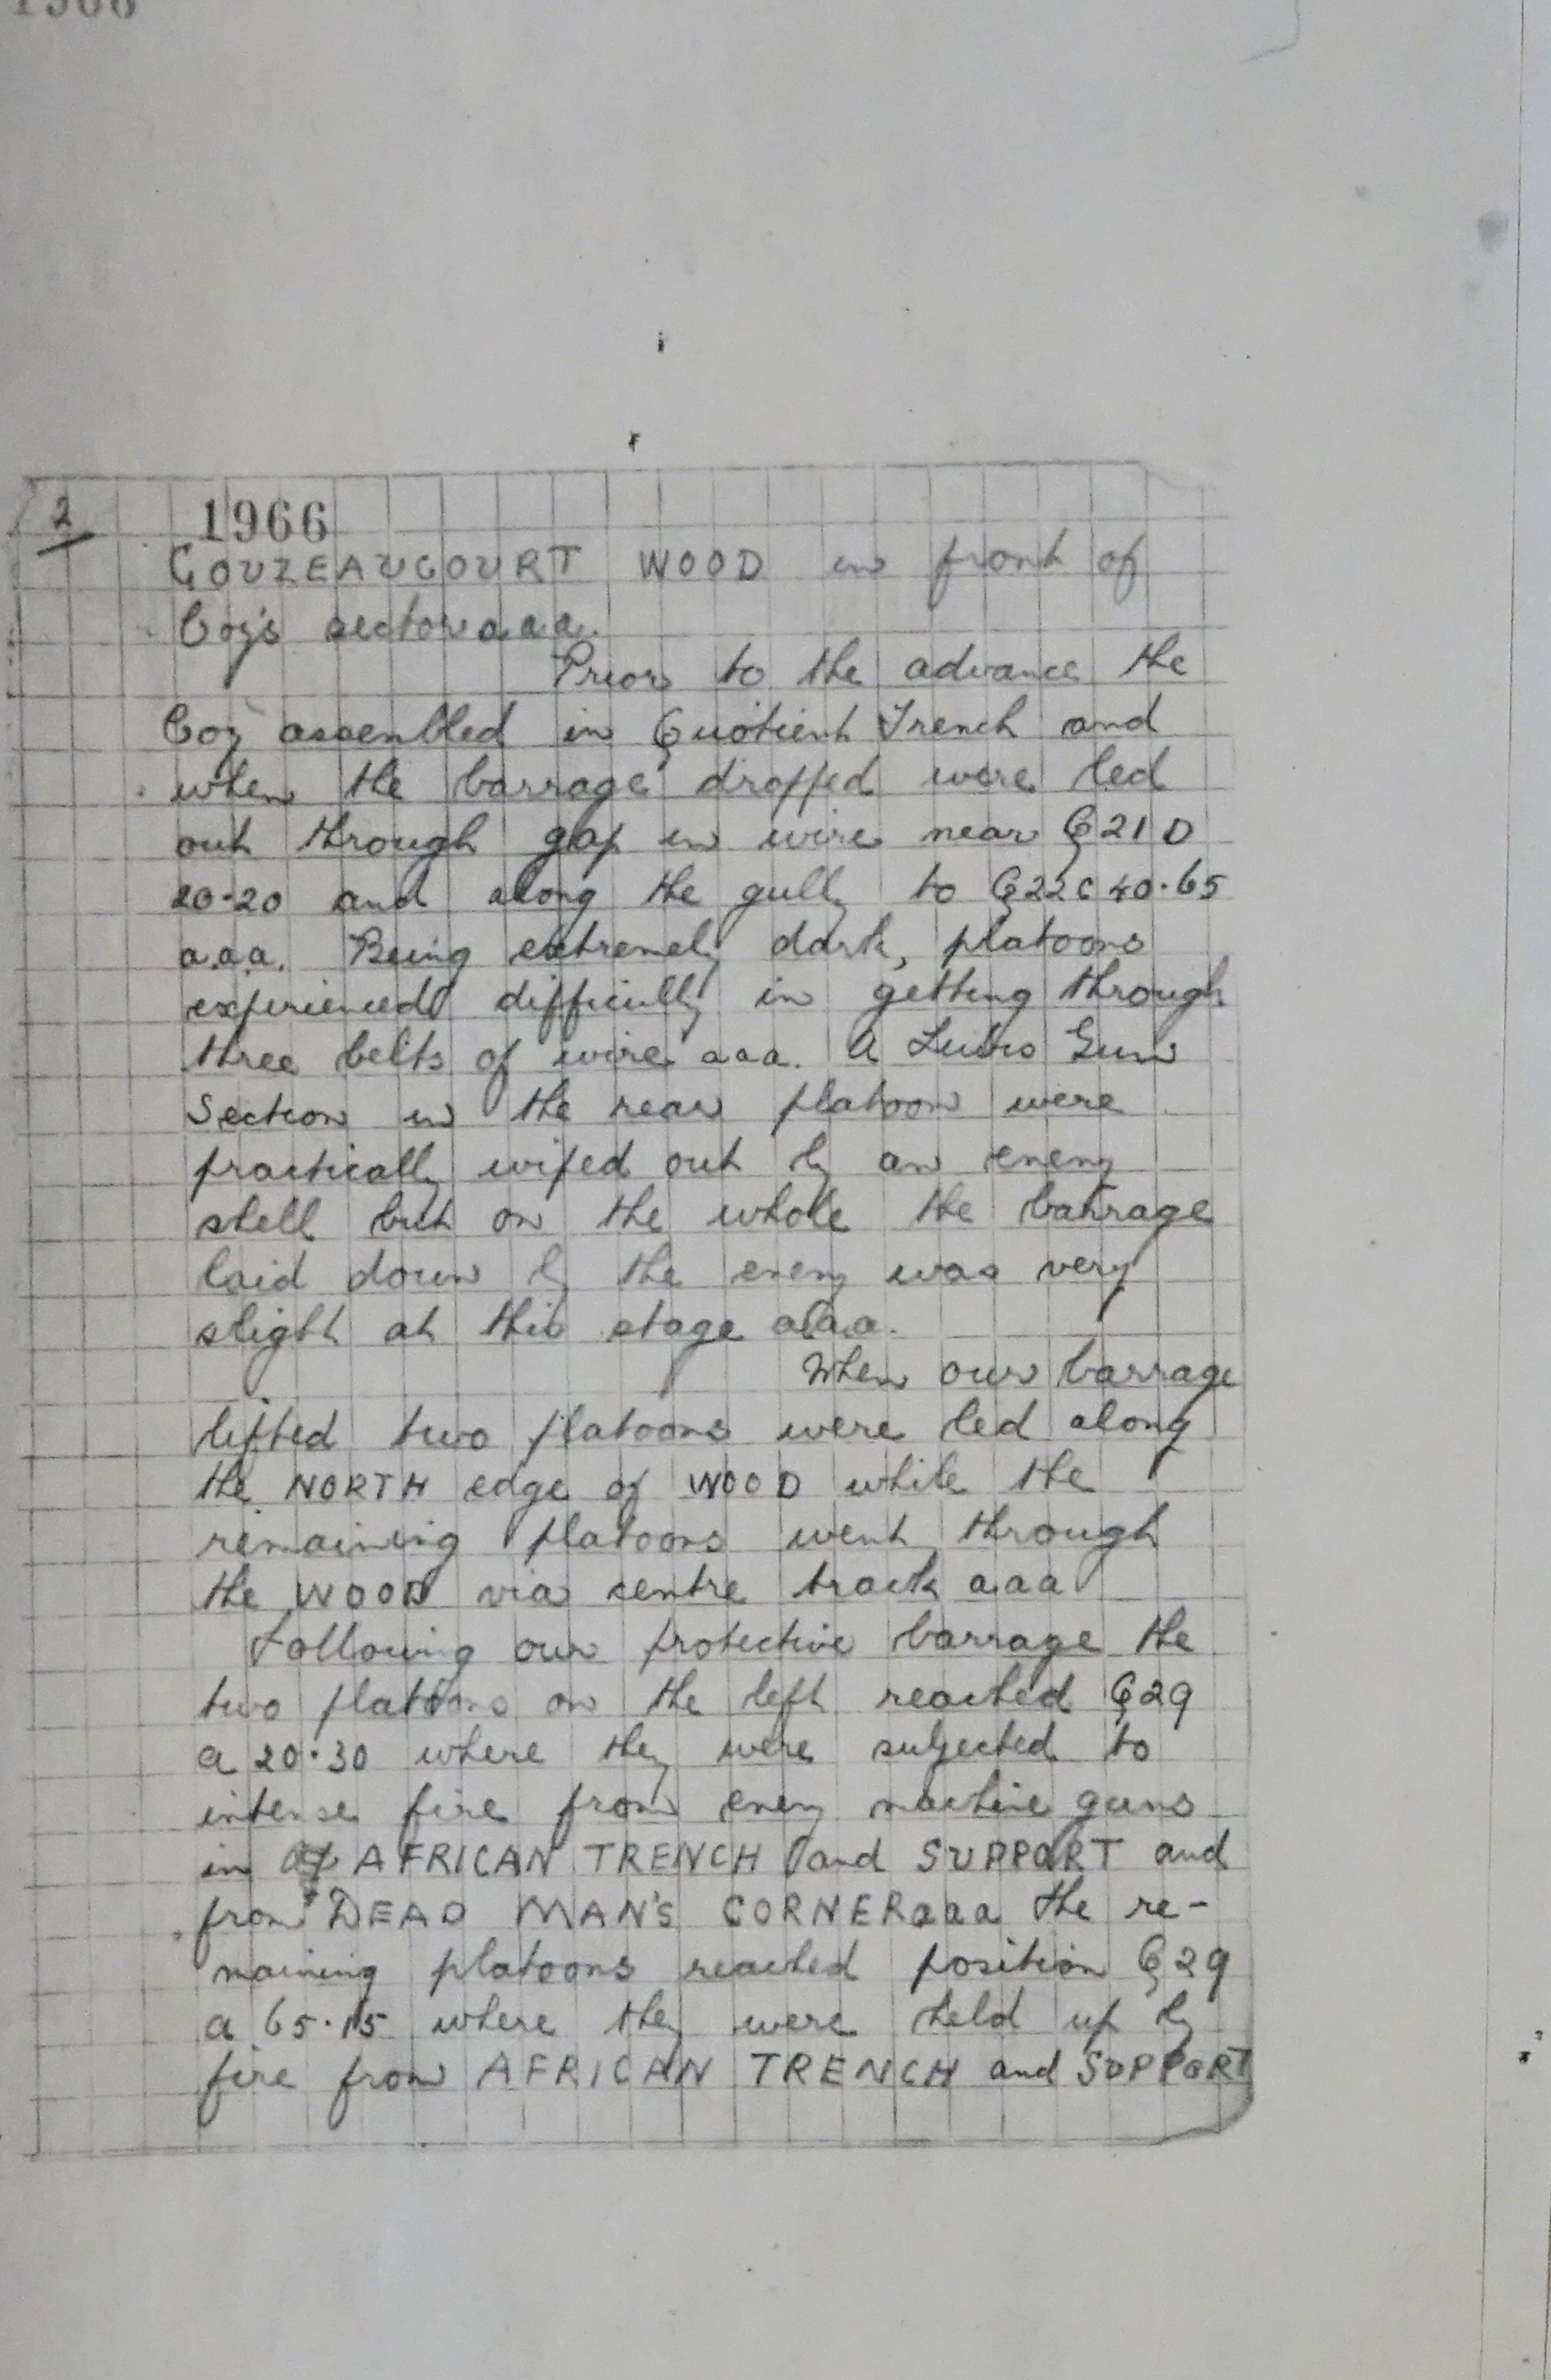 1966
2
1966
GOUZEAUCOURT WOOD in front of
Coy's sector aaa.
Prior to the advance the
Coy assembled in Quotient Trench and
when the barrage dropped were led
out through gap in wire near Q21D
20·20 and along the gully to Q22C 40·65
a.a.a. Being extremely dark, platoons
experienced difficulty in getting through
three belts of wire aaa. A Lewis Gun
Section in the rear platoon were
practically wiped out by an enemy
shell but on the whole the barrage
laid down by the enemy was very
slight at this stage a.a.a.
When our barrage
lifted two platoons were led along
the NORTH edge of WOOD while the
remaining platoons went through
the WOOD via centre track aaa
Following our protective barrage the
two platoons on the left reached Q29
a 20·30 where they were subjected to
intense fire from enemy machine guns
in AFRICAN TRENCH and SUPPORT and
from DEAD MAN'S CORNER aaa the re-
maining platoons reached position Q29
a 65·15 where they were held up by
fire from AFRICAN TRENCH and SUPPORT